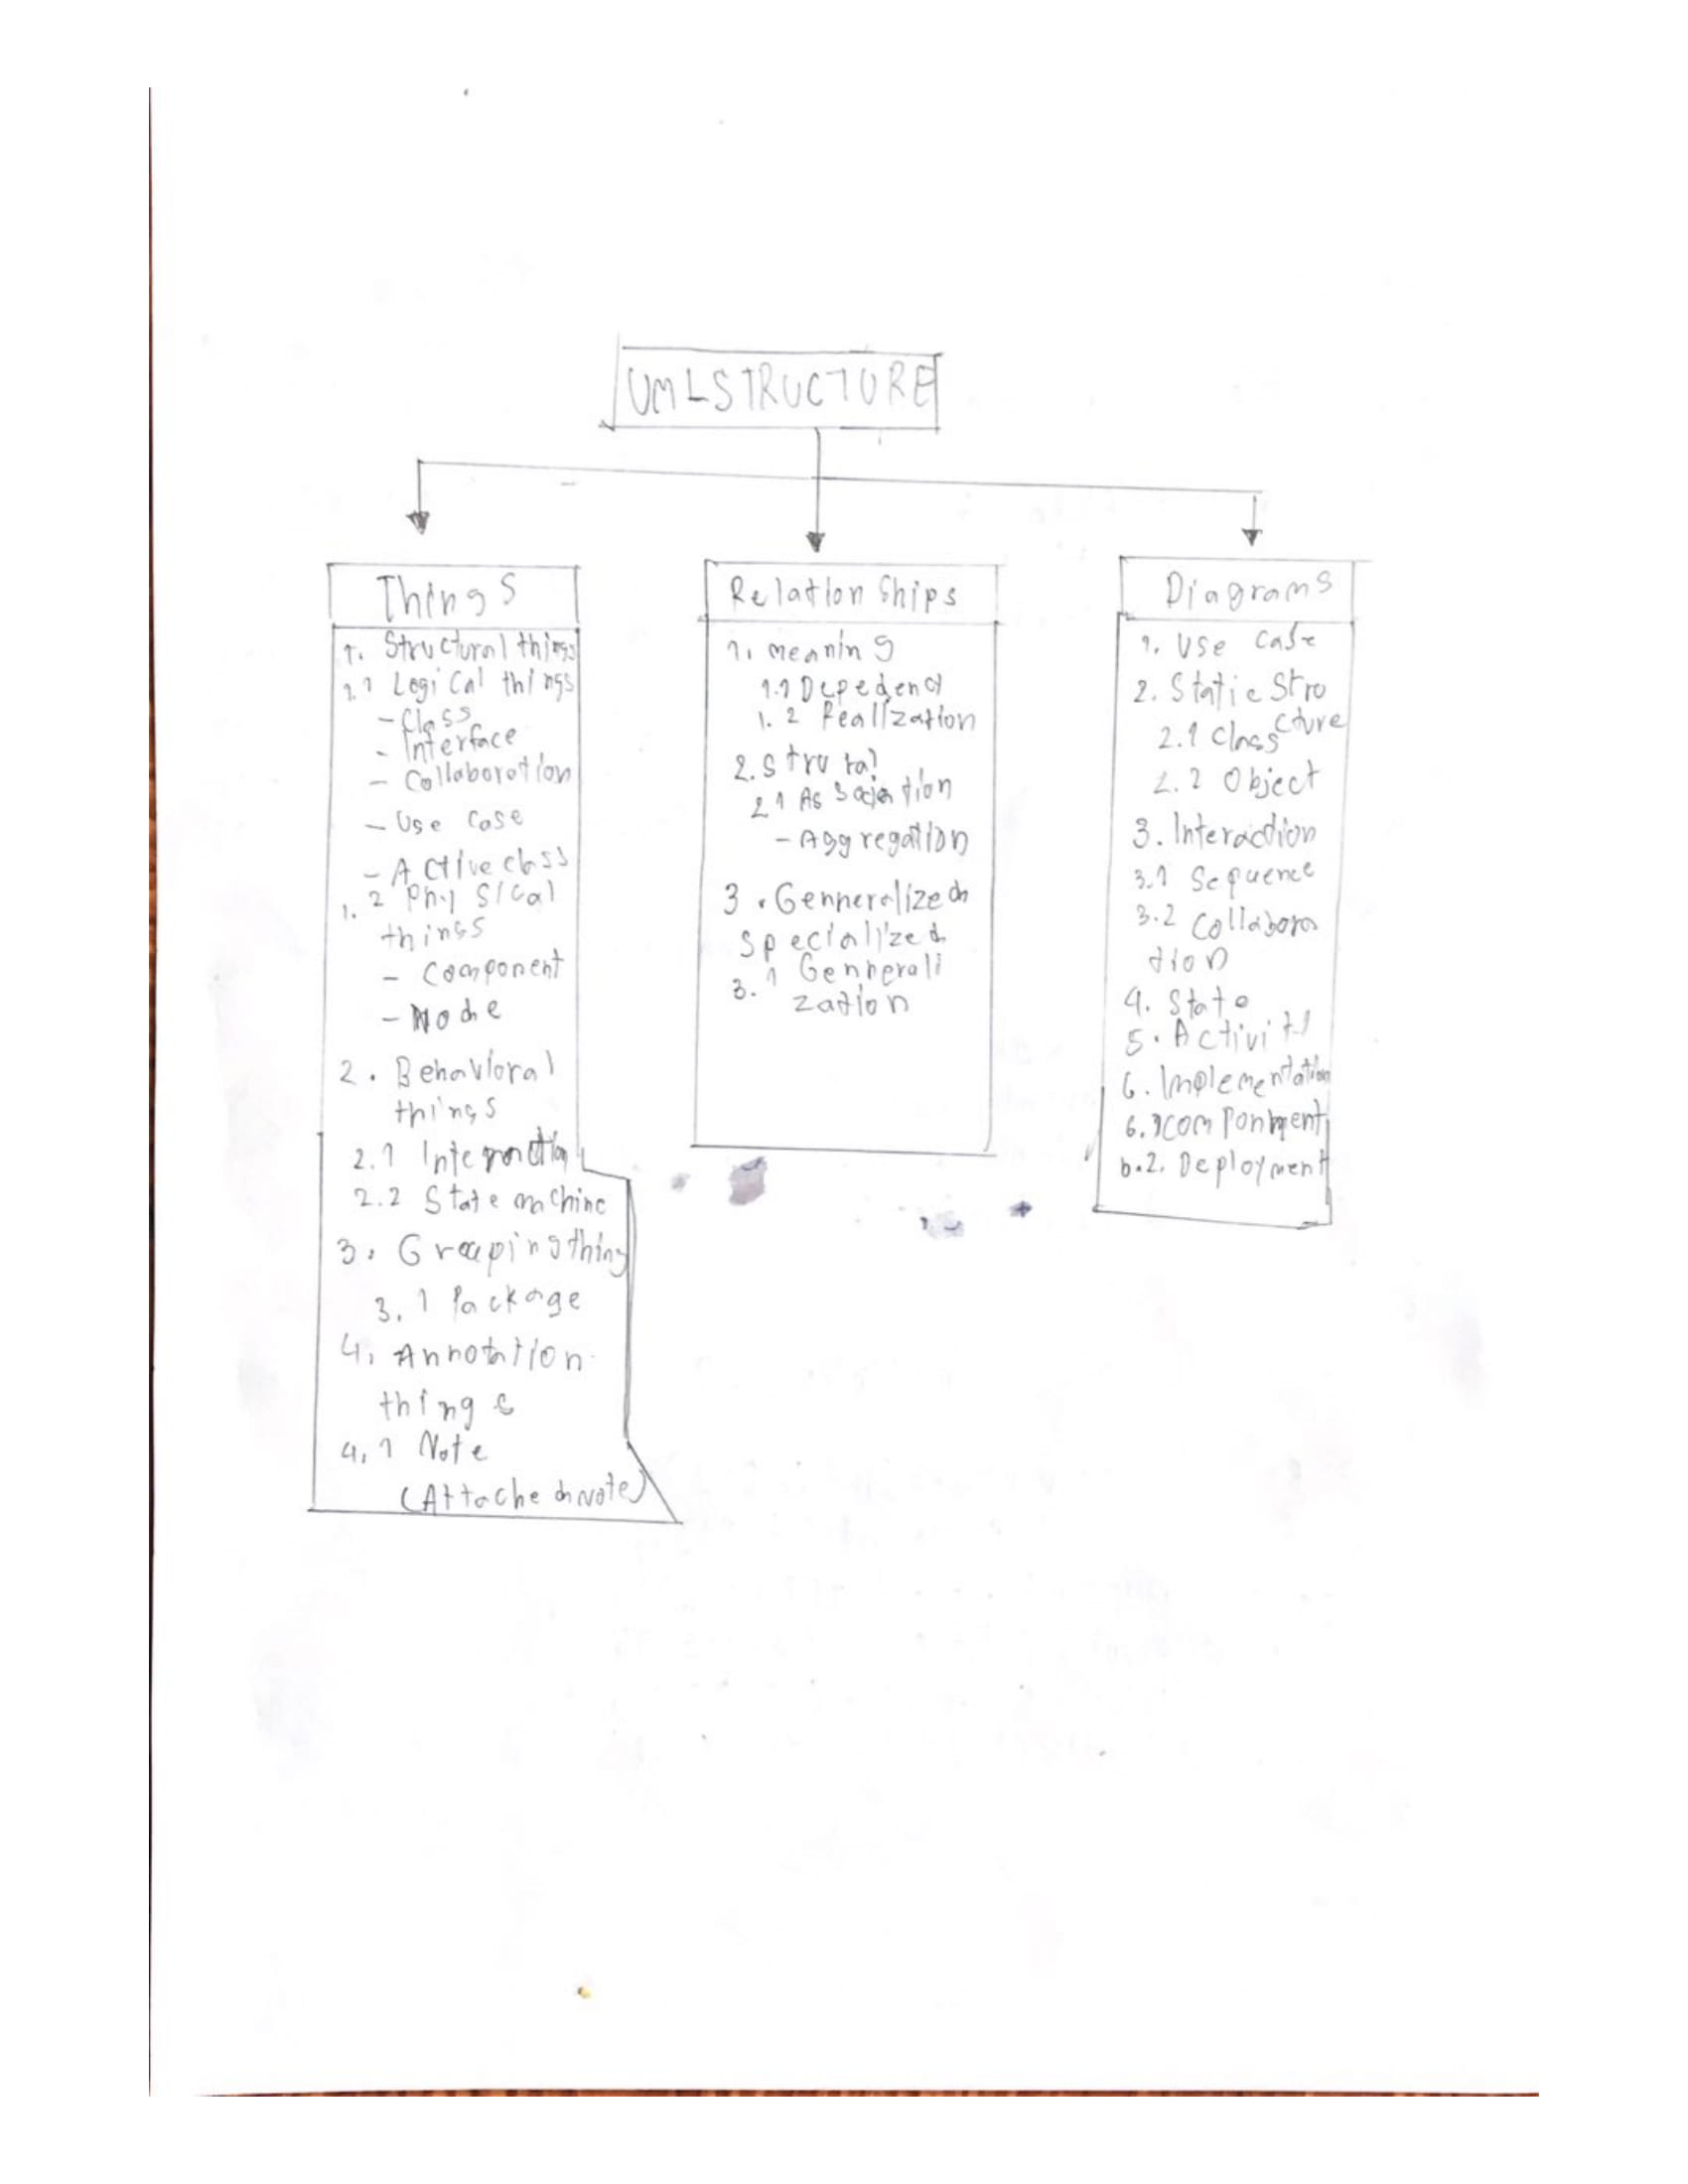 UMLSTRUCTURE
Things
1. Structural things
1.1 Logical things
- Class
- Interface
- Collaboration
- Use case
- Active class
1.2 Physical
things
- Component
- Node
2. Behavioral
things
2.1 Interaction
2.2 State machine
3. Grouping thing
3.1 Package
4. Annotation
things
4.1 Note
(Attached Note)
Relation Ships
1. meaning
1.1 Depedency
1.2 Realization
2. Strutal
2.1 Association
- Aggregation
3. Genneralized
Specialized
3.1 Gennerali
zation
Diagrams
1. Use Case
2. Static Stru
cture
2.1 Class
2.2 Object
3. Interaction
3.1 Sequence
3.2 Collabora
tion
4. State
5. Activity
6. Implementation
6.1 Componment
6.2. Deployment